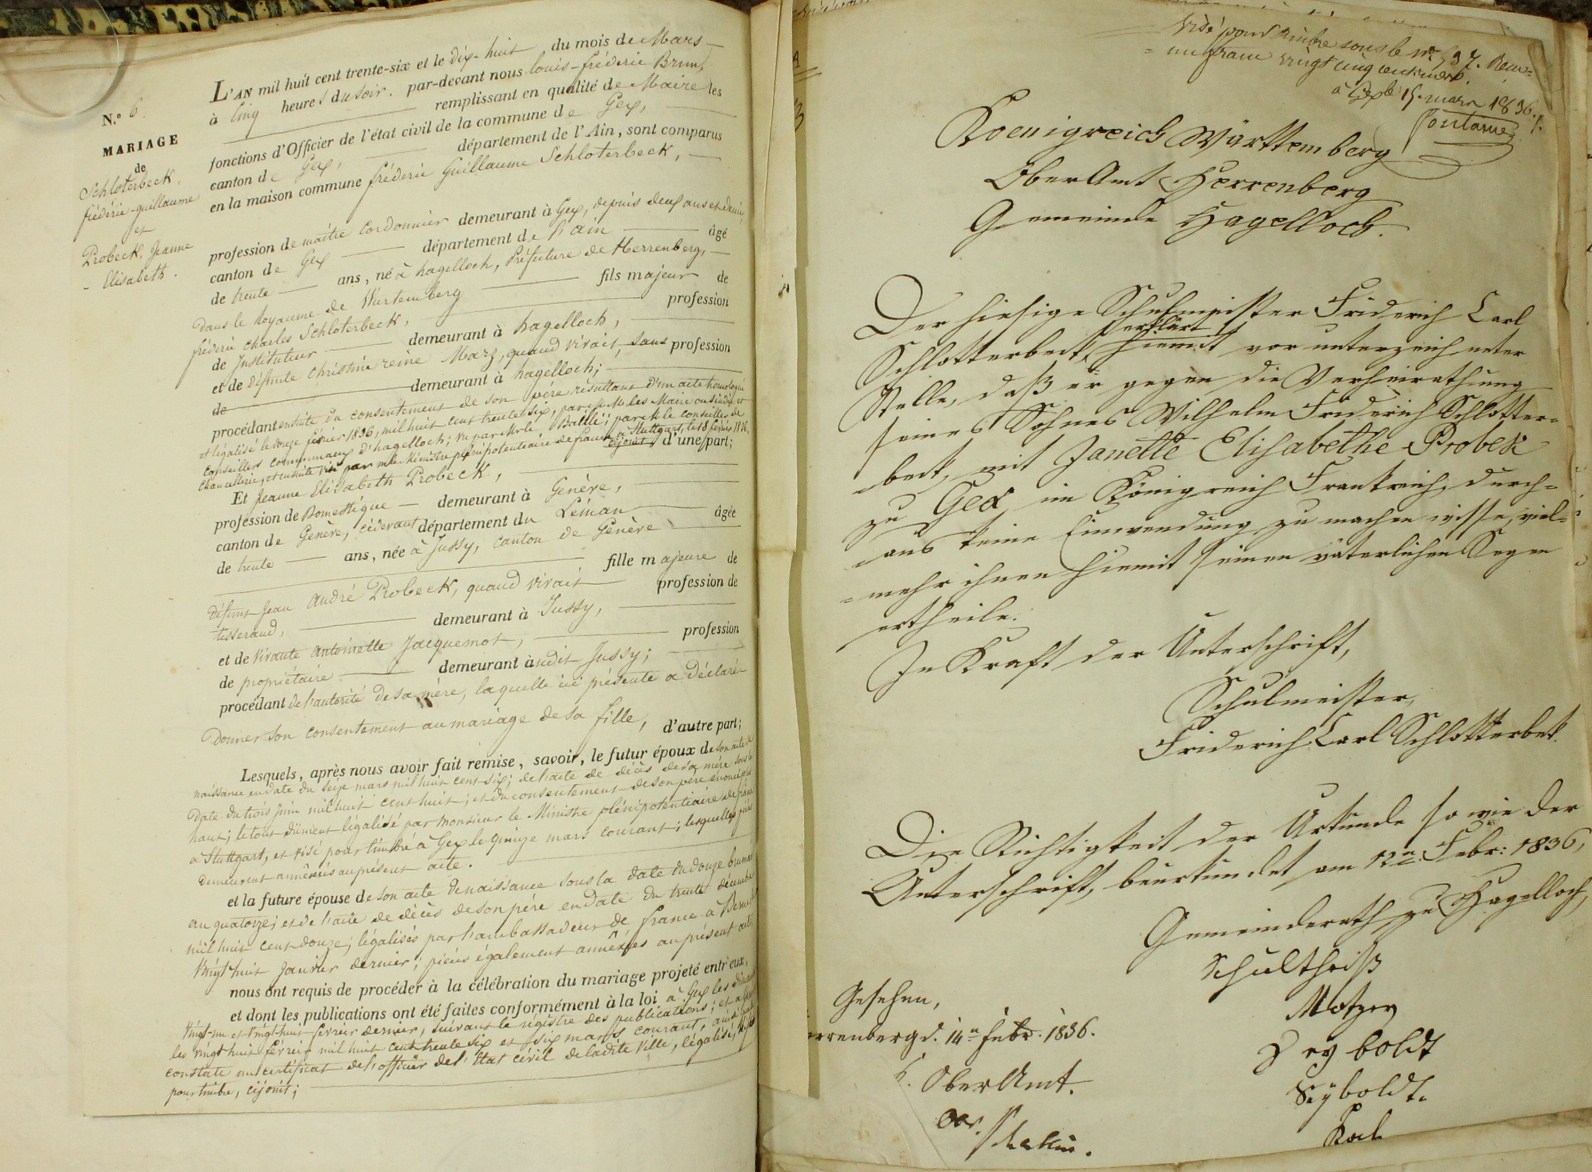 N.º 6
MARIAGE
de
Schloterbeck
frédéric-guillaume
et
Probeck Jeanne
- Elisabeth.
L'AN mil huit cent trente-six et le dix-huit du mois de Mars
à cinq heures du soir. par-devant nous louis-fréderic Brun,
remplissant en qualité de Maire les
fonctions d'Officier de l'état civil de la commune de Gex,
canton de Gex, département de l'Ain, sont comparus
en la maison commune fréderic Guillaume Schloterbeck,
profession de maître Cordonnier demeurant à Gex, depuis deux ans et demi,
canton de Gex département de l'ain âgé
de trente ans, né à hagelloch, Préfecture de Herrenberg,
dans le Royaume de Wurtemberg fils majeur de
fréderic charles Schloterbeck, profession
de Instituteur demeurant à hagelloch,
et de défunte christine reine Marz, quand vivait, sans profession
de demeurant à hagelloch;
procédant ensuite du consentement de son père résultant d'un acte
et légalisé le douze février 1836, mil huit cent trente six, par M. les Maire
conseillers communaux d'hagelloch; Vu par
chancellerie, et ensuite visé par le Ministre plénipotentiaire de france à Stuttgart, d'une part;
Et Jeanne Elisabeth Probeck,
profession de Domestique demeurant à Genève,
canton de Genève, cidevant département du Léman âgée
de trente ans, née à Jussy, canton de Genève
fille majeure de
défunt Jean André Probeck, quand vivait profession de
tisserand, demeurant à Jussy,
et de vivante Antoinette Jacquemot, profession
de propriétaire demeurant à udit Jussy;
procédant de l'autorité de sa mère, laquelle ici présente a déclaré
Donner son consentement au mariage de sa fille, d'autre part;
Lesquels, après nous avoir fait remise, savoir, le futur époux de son acte de
naissance en date du seize mars mil huit cent six; de l'acte de décès de sa mère sous la
Date du trois juin mil huit cent huit; et du consentement de son père énoncé plus
haut; le tout dûment légalisé par monsieur le Ministre plénipotentiaire de france
à Stuttgart, et visé pour timbre à Gex le quinze mars courant; lesquelles pièces
demeurent annexées au présent acte.
et la future épouse de son acte de naissance sous la date du douze brumaire
an quatorze; et de l'acte de décès de son père en date du trente décembre
mil huit cent douze; légalisés par l'ambassadeur de france à Berne
vingt-huit Janvier dernier; pièces également annexées au présent acte
nous ont requis de procéder à la célébration du mariage projeté entr'eux,
et dont les publications ont été faites conformément à la loi à Gex les dimanches
vingt-un et vingt-huit février dernier, suivant le régistre des publications; et à
les vingt-huit février mil huit cent trente six et six mars courant, ainsi
constaté au certificat de l'officier de l'Etat civil de ladite ville, légalisé,
pour timbre, cijoint;
Visé pour timbre sous le nº 537. Reçu
un franc vingt cinq centimes.
à Gex le 15. mars 1836.
Fontaine
Koenigreich Württemberg
OberAmt Herrenberg
Gemeinde Hagelloch.
Der hiesige Schulmeister Friderich Carl
Schlotterbeck, erklärt hiemit vor unterzeichneter
Stelle, daß er gegen die Verheirathung
seines Sohnes Wilhelm Friderich Schlotter-
bek, mit Janette Elisabethe Probek
zu Gex, im Königreich Frankreich, durch-
aus keine Einwendung zu machen wisse, viel-
mehr ihnen hiemit seinen väterlichen Segen
ertheile.
In Kraft der Unterschrift,
Schulmeister,
Friderich Carl Schlotterbek.
Die Richtigkeit der Urkunde so wie der
Unterschrift, beurkundet am 12n Febr: 1836,
Gemeinderath zu Hagelloch,
Schultheiß
Motzer
Seyboldt
Seyboldt.
Koch
Gesehen,
errenberg d. 14n Febr. 1836.
K. OberAmt.